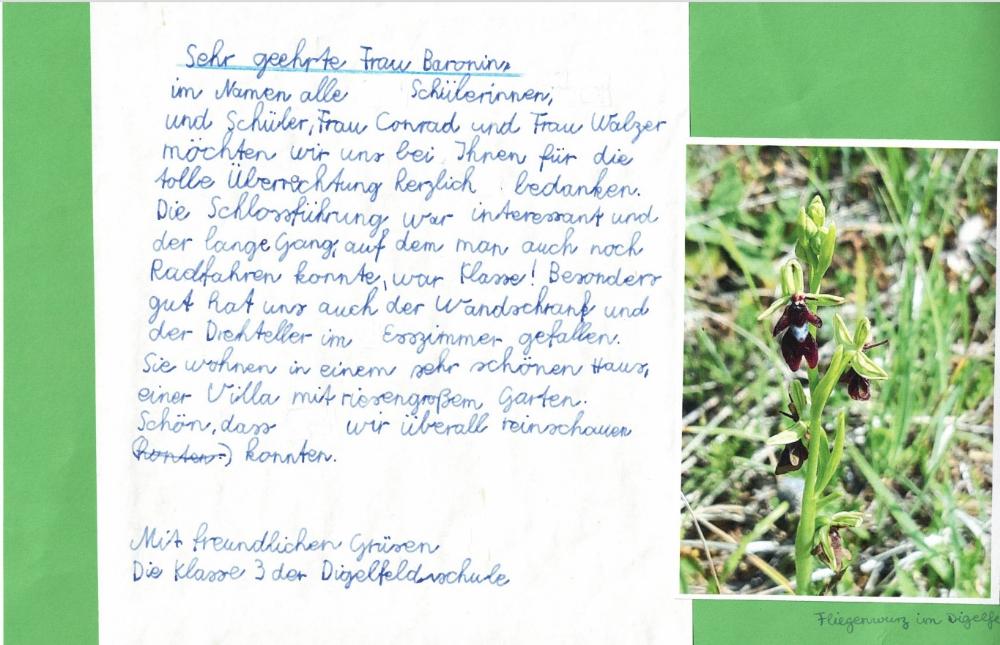 Sehr geehrte Frau Baronin,
im Namen alle Schülerinnen,
und Schüler, Frau Conrad und Frau Walzer
möchten wir uns bei Ihnen für die
tolle Überrechtung herzlich bedanken.
Die Schlossführung war interessant und
der lange Gang, auf dem man auch noch
Radfahren konnte, war Klasse! Besonders
gut hat uns auch der Wandschrank und
der Drehteller im Esszimmer gefallen.
Sie wohnen in einem sehr schönen Haus,
einer Villa mit riesengroßem Garten.
Schön, dass wir überall reinschauen
(konnten.) konnten.
Mit freundlichen Grüsen
Die Klasse 3 der Digelfeldschule
Fliegenwurz im Digelfe